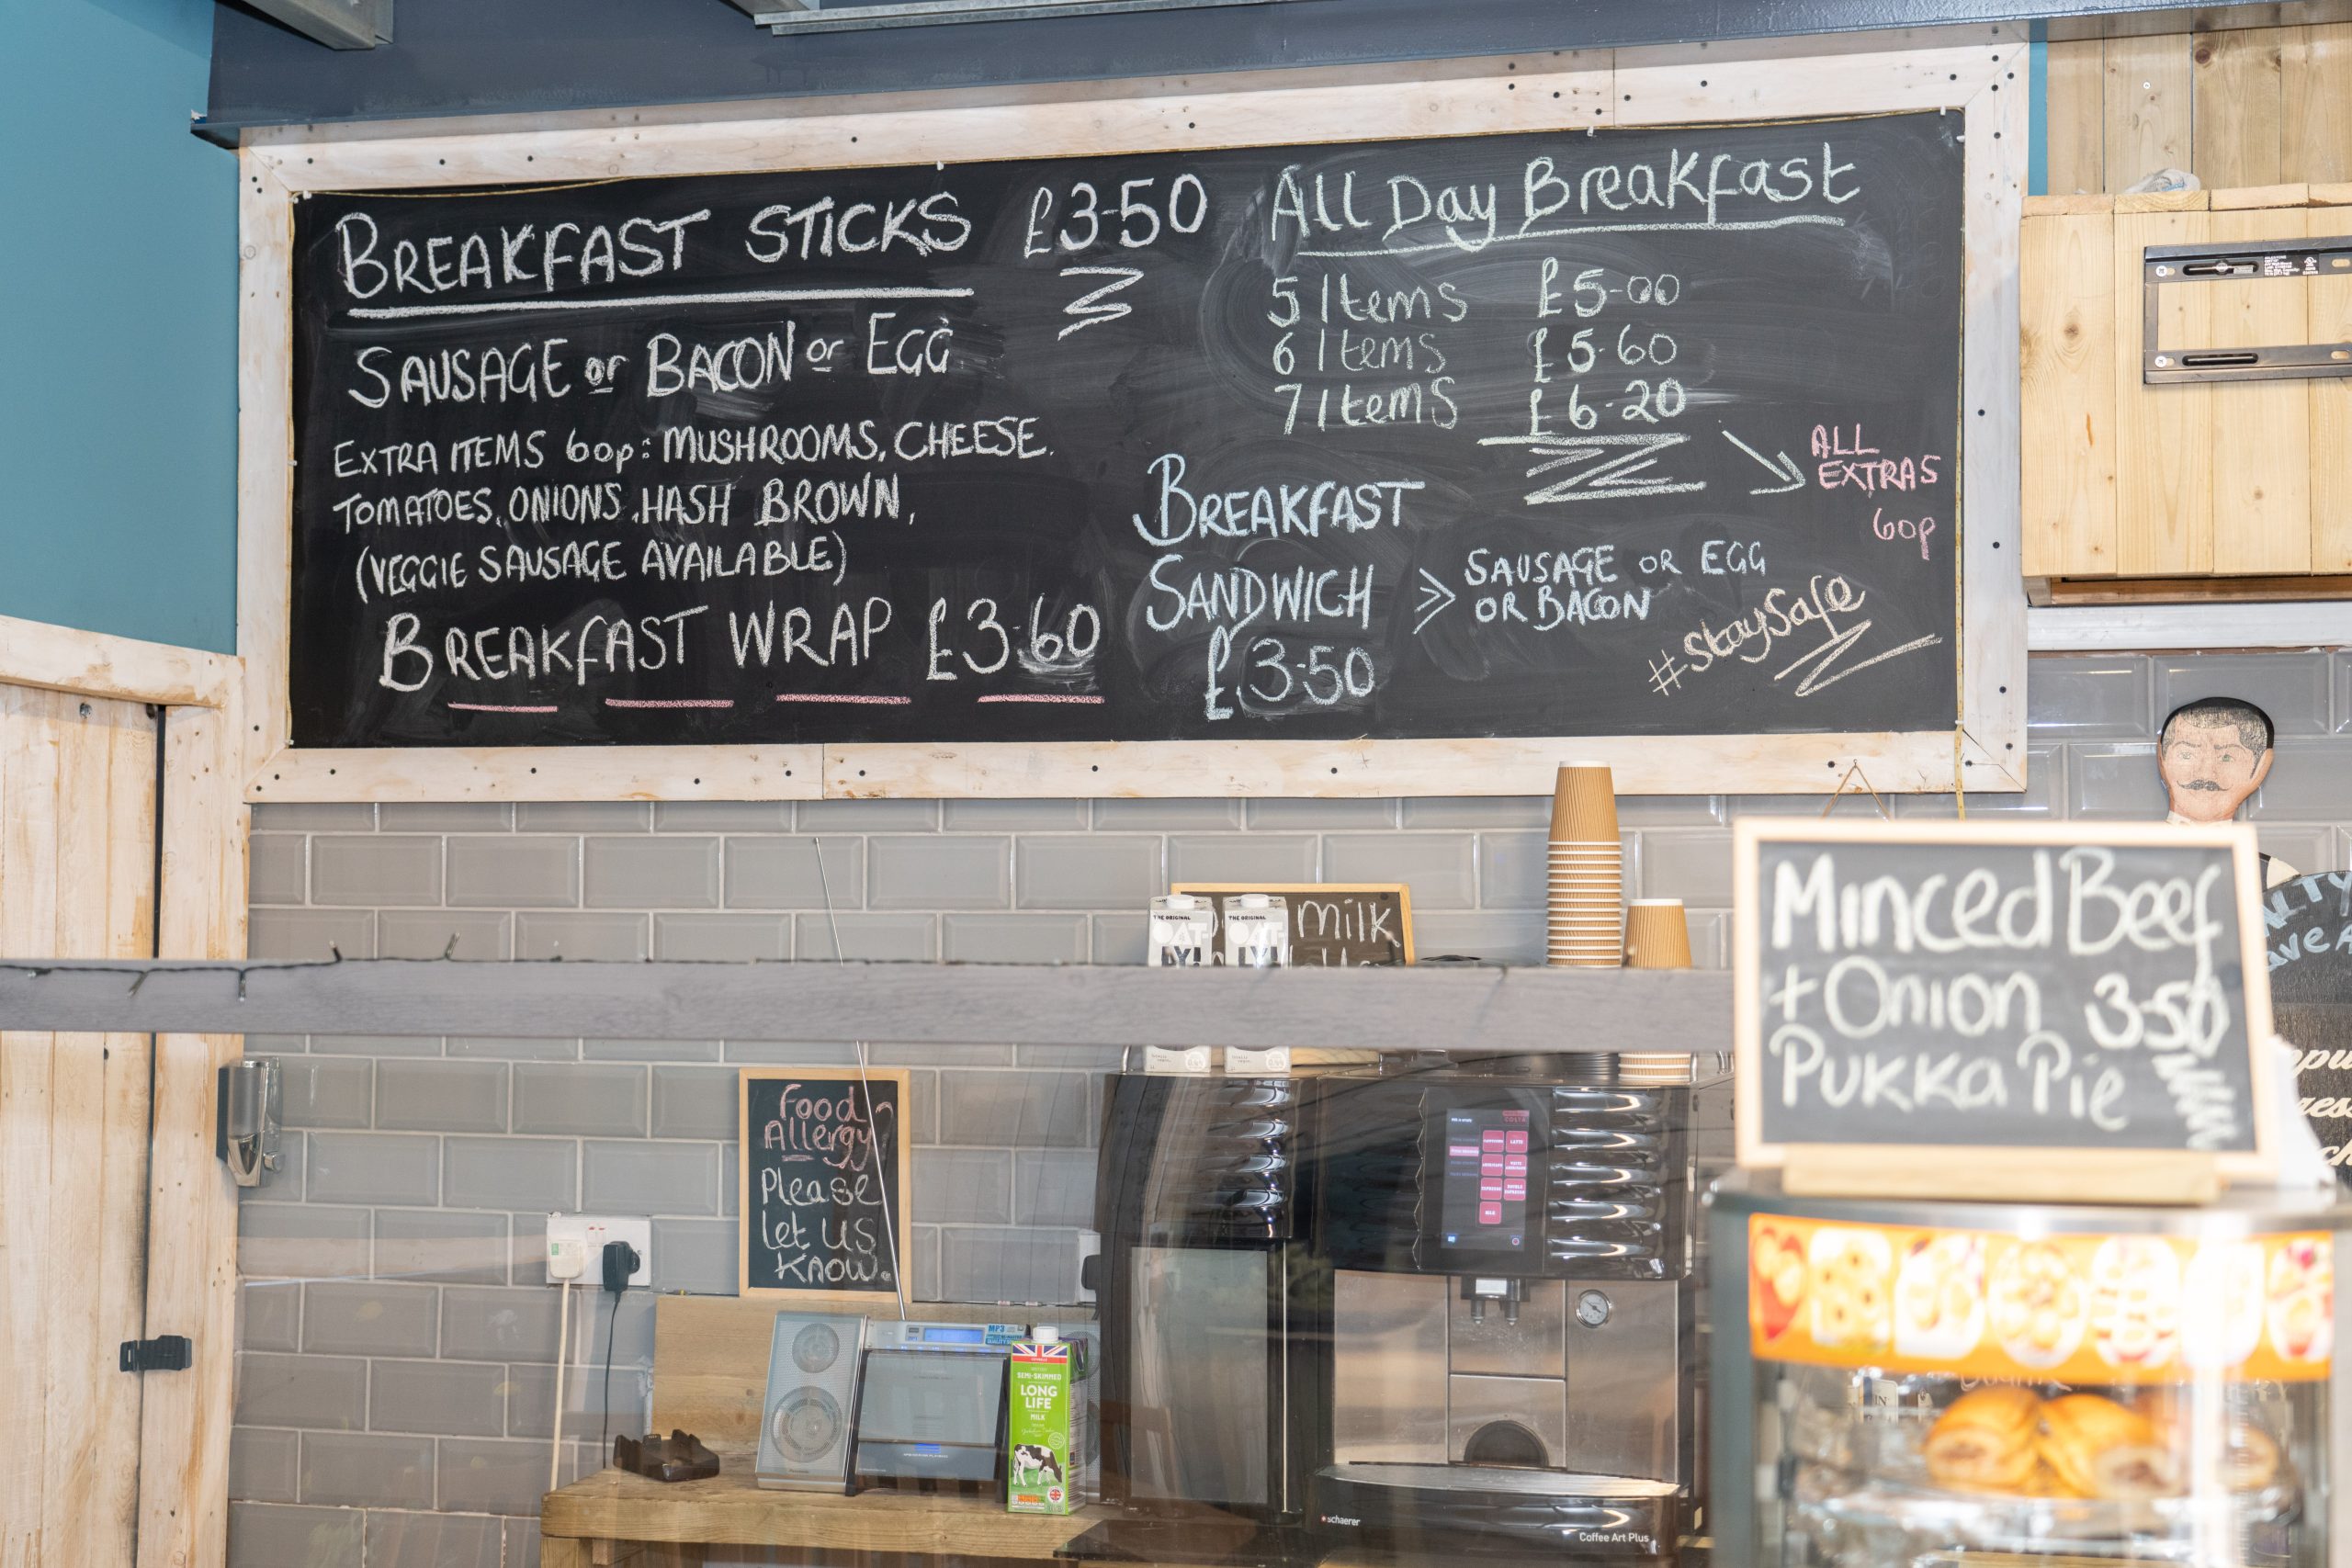 BREAKFAST STICKS £3-50
SAUSAGE or BACON or EGG
EXTRA ITEMS 60p: MUSHROOMS, CHEESE.
TOMATOES, ONIONS, HASH BROWN,
(VEGGIE SAUSAGE AVAILABLE)
BREAKFAST WRAP £3.60
All Day Breakfast
5 Items £5-00
6 Items £5-60
7 Items £6-20
ALL
EXTRAS
60p
BREAKFAST
SANDWICH
£3-50
SAUSAGE OR EGG
OR BACON
#staysafe
Milk
THE ORIGINAL
OAT-
THE ORIGINAL
OAT-
Minced Beef
+ Onion 3-50
Pukka Pie
Food
Allergy?
Please
Let us
Know.
MP3
SEMI-SKIMMED
LONG
LIFE
MILK
schaerer
Coffee Art Plus